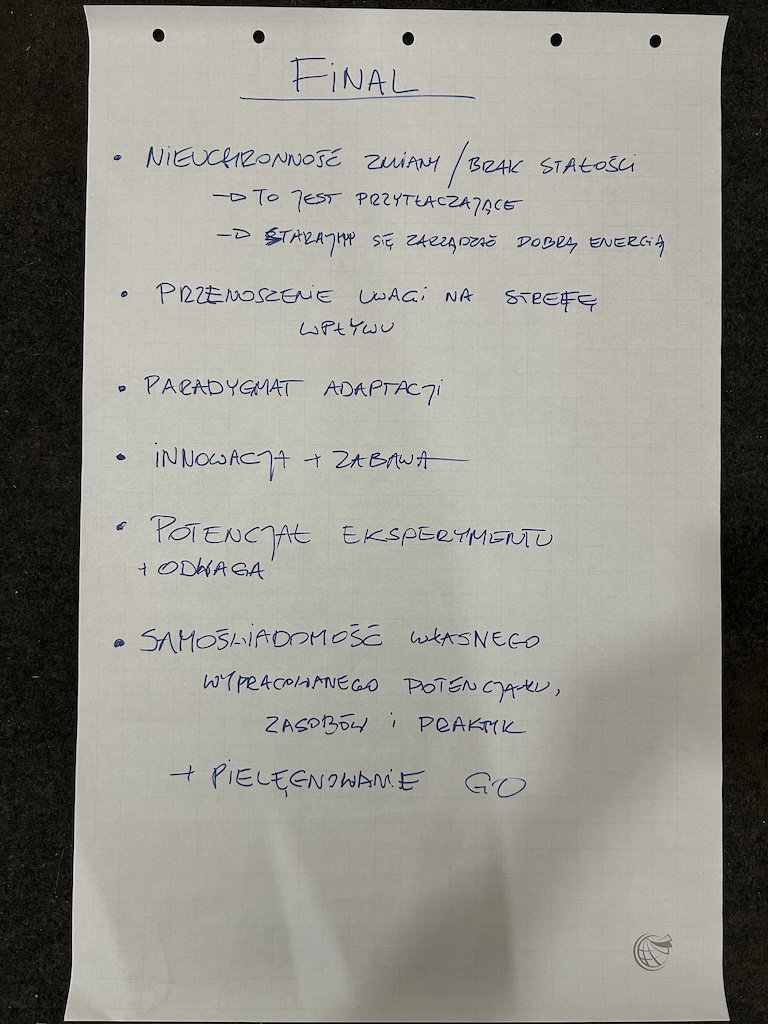 FINAL
• NIEUCHRONNOŚĆ ZMIANY / BRAK STAŁOŚCI
→ TO JEST PRZYTŁACZAJĄCE
→ STARAJMY SIĘ ZARZĄDZAĆ DOBRĄ ENERGIĄ
• PRZENOSZENIE UWAGI NA STREFĘ
WPŁYWU
• PARADYGMAT ADAPTACJI
• INNOWACJA + ZABAWA
• POTENCJAŁ EKSPERYMENTU
+ ODWAGA
• SAMOŚWIADOMOŚĆ WŁASNEGO
WYPRACOWANEGO POTENCJAŁU,
ZASOBÓW I PRAKTYK
+ PIELĘGNOWANIE GO